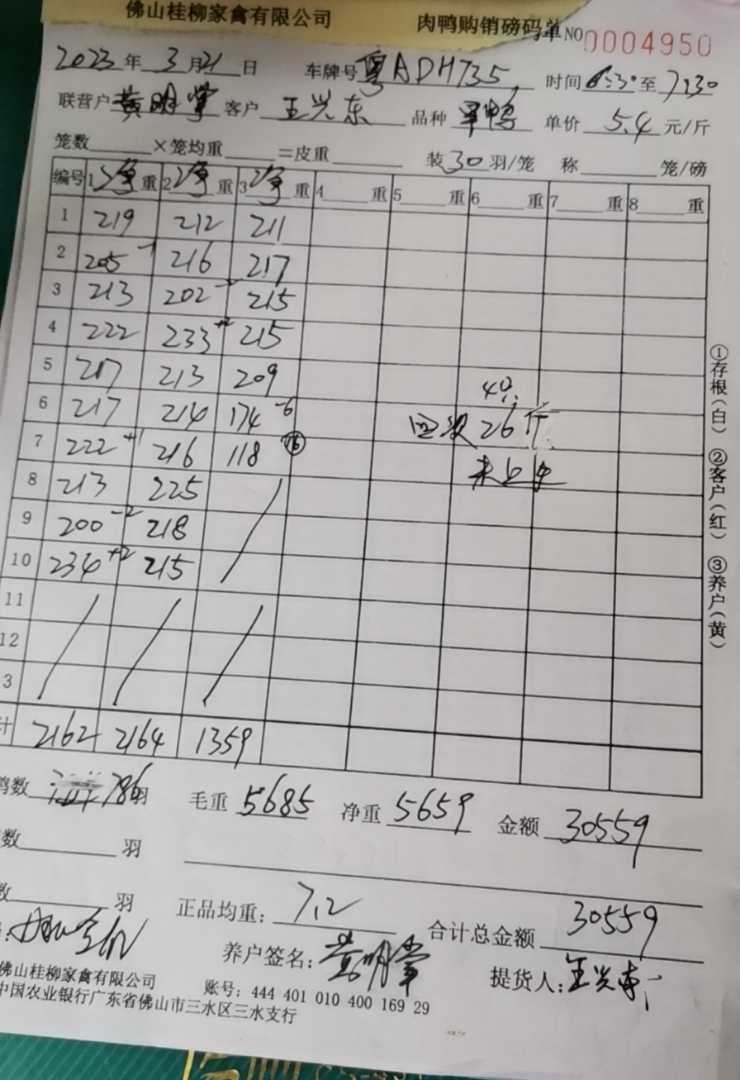 佛山桂柳家禽有限公司 肉鸭购销磅码单 NO 0004950
2023年 3月21日 车牌号 粤ADH735 时间 6:30 至 7:30
联营户 黄明掌 客户 王兴东 品种 单价 5.4 元/斤
笼数 ×笼均重 =皮重 装30羽/笼 称 笼/磅
编号 1 净重 2 净重 3 净重 4 重 5 重 6 重 7 重 8 重
1 219 212 211
2 205 -1 216 217
3 213 202 215
4 222 233 +2 215
5 217 213 209
6 217 214 174 -6
7 222 +1 216 118 16
8 213 225
9 200 -2 218
10 234 +2 215
11
12
3
计 2162 2164 1359
4只
26斤
①存根(白) ②客户(红) ③养户(黄)
鸭数 786羽 毛重 5685 净重 5659 金额 30559
数 羽
数 羽 正品均重: 7.2 合计总金额 30559
养户签名: 黄明掌 提货人: 王兴东
佛山桂柳家禽有限公司 账号: 444 401 010 400 169 29
中国农业银行广东省佛山市三水区三水支行